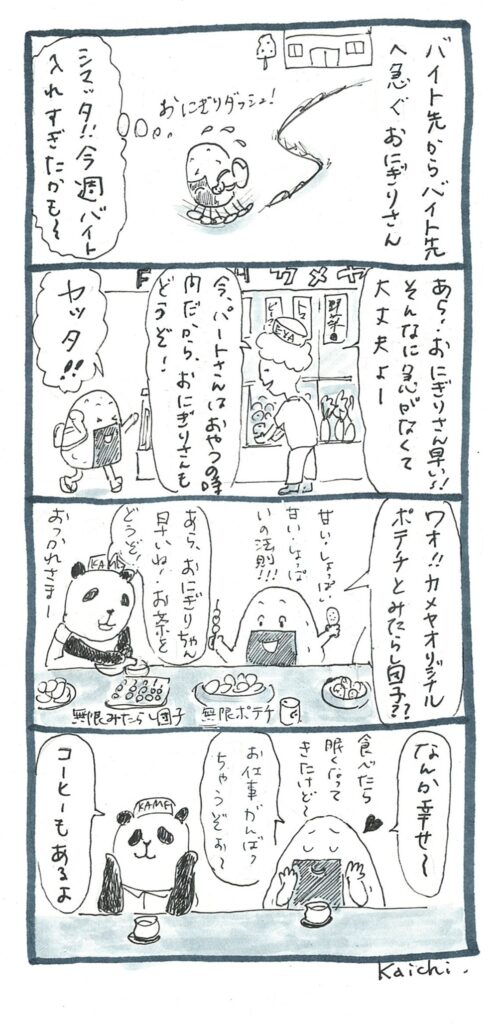 バイト先からバイト先
へ急ぐおにぎりさん
おにぎりダッシュ!
シマッタ!!今週バイト
入れすぎたかも〜
あら!おにぎりさん早いっ!!
そんなに急がなくて
大丈夫よー
野菜
EYA
今、パートさんはおやつの時
間だから、おにぎりさんも
どうぞ!
ヤッタ!!
ワオ!!カメヤオリジナル
ポテチとみたらし団子??
甘い、しょっぱい
甘い、しょっぱ
いの法則!!!
あら、おにぎりちゃん
早いね!お茶を
どうぞ!
おつかれさまー
KAME
無限みたらし団子
無限ポテチ
なんか幸せ〜
食べたら
眠くなって
きたけど〜
お仕事がんばっ
ちゃうぞぉ〜
KAME
コーヒーもあるよ
Kaichi.